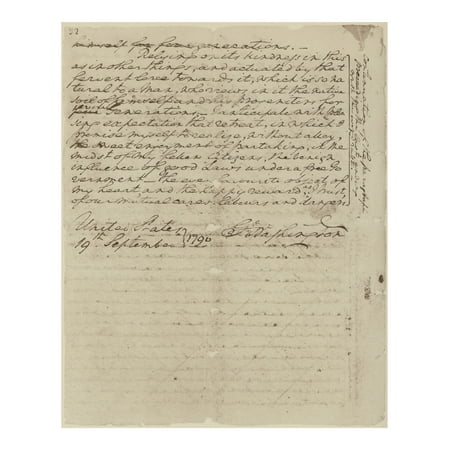 32
himself for four generations. —
Relying on its kindness in this
as in other things, and actuated by that
fervent love towards it, which is so na-
tural to a man, who views in it the native
soil of himself and his progenitors for
several Generations; I anticipate with plea-
sing expectation that retreat, in which I
promise myself to realize, without alloy,
the sweet enjoyment of partaking, in the
midst of my fellow Citizens, the benign
influence of good Laws under a free Go-
vernment, the ever favourite object of
my heart, and the happy reward, as I trust,
of our mutual cares, labours and dangers
United States
19th September 1796
Go Washington